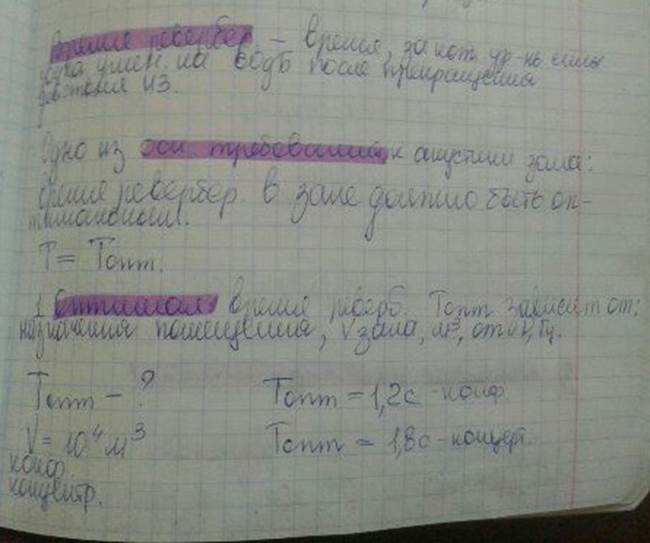 Время ревербер – время, за кот ур-нь силы
звука умен. на 60дБ после прекращения
действия ИЗ.
Одно из осн требований к акустике зала:
время ревербер в зале должно быть оп-
тимальным.
T = Tопт.
Оптимал время реверб. Tопт зависит от:
назначения помещения, V зала, м³, от
Tопт – ?
Tопт = 1,2с - конф
V = 10⁴ м³
Tопт = 1,8с - концерт.
конф.
концертр.